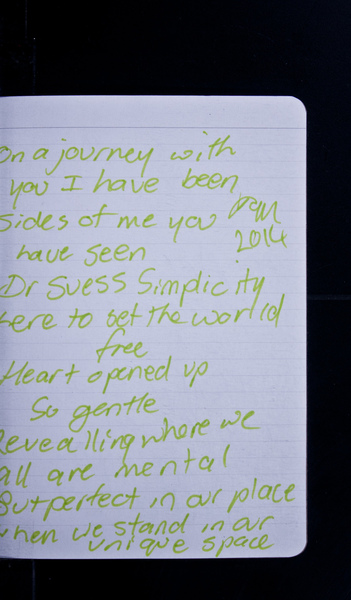 On a journey with
you I have been
Sides of me you
2014
have seen
Dr Suess Simplicity
here to set the world
free
Heart opened up
So gentle
Revealling where we
all are mental
But perfect in our place
when we stand in our
unique space